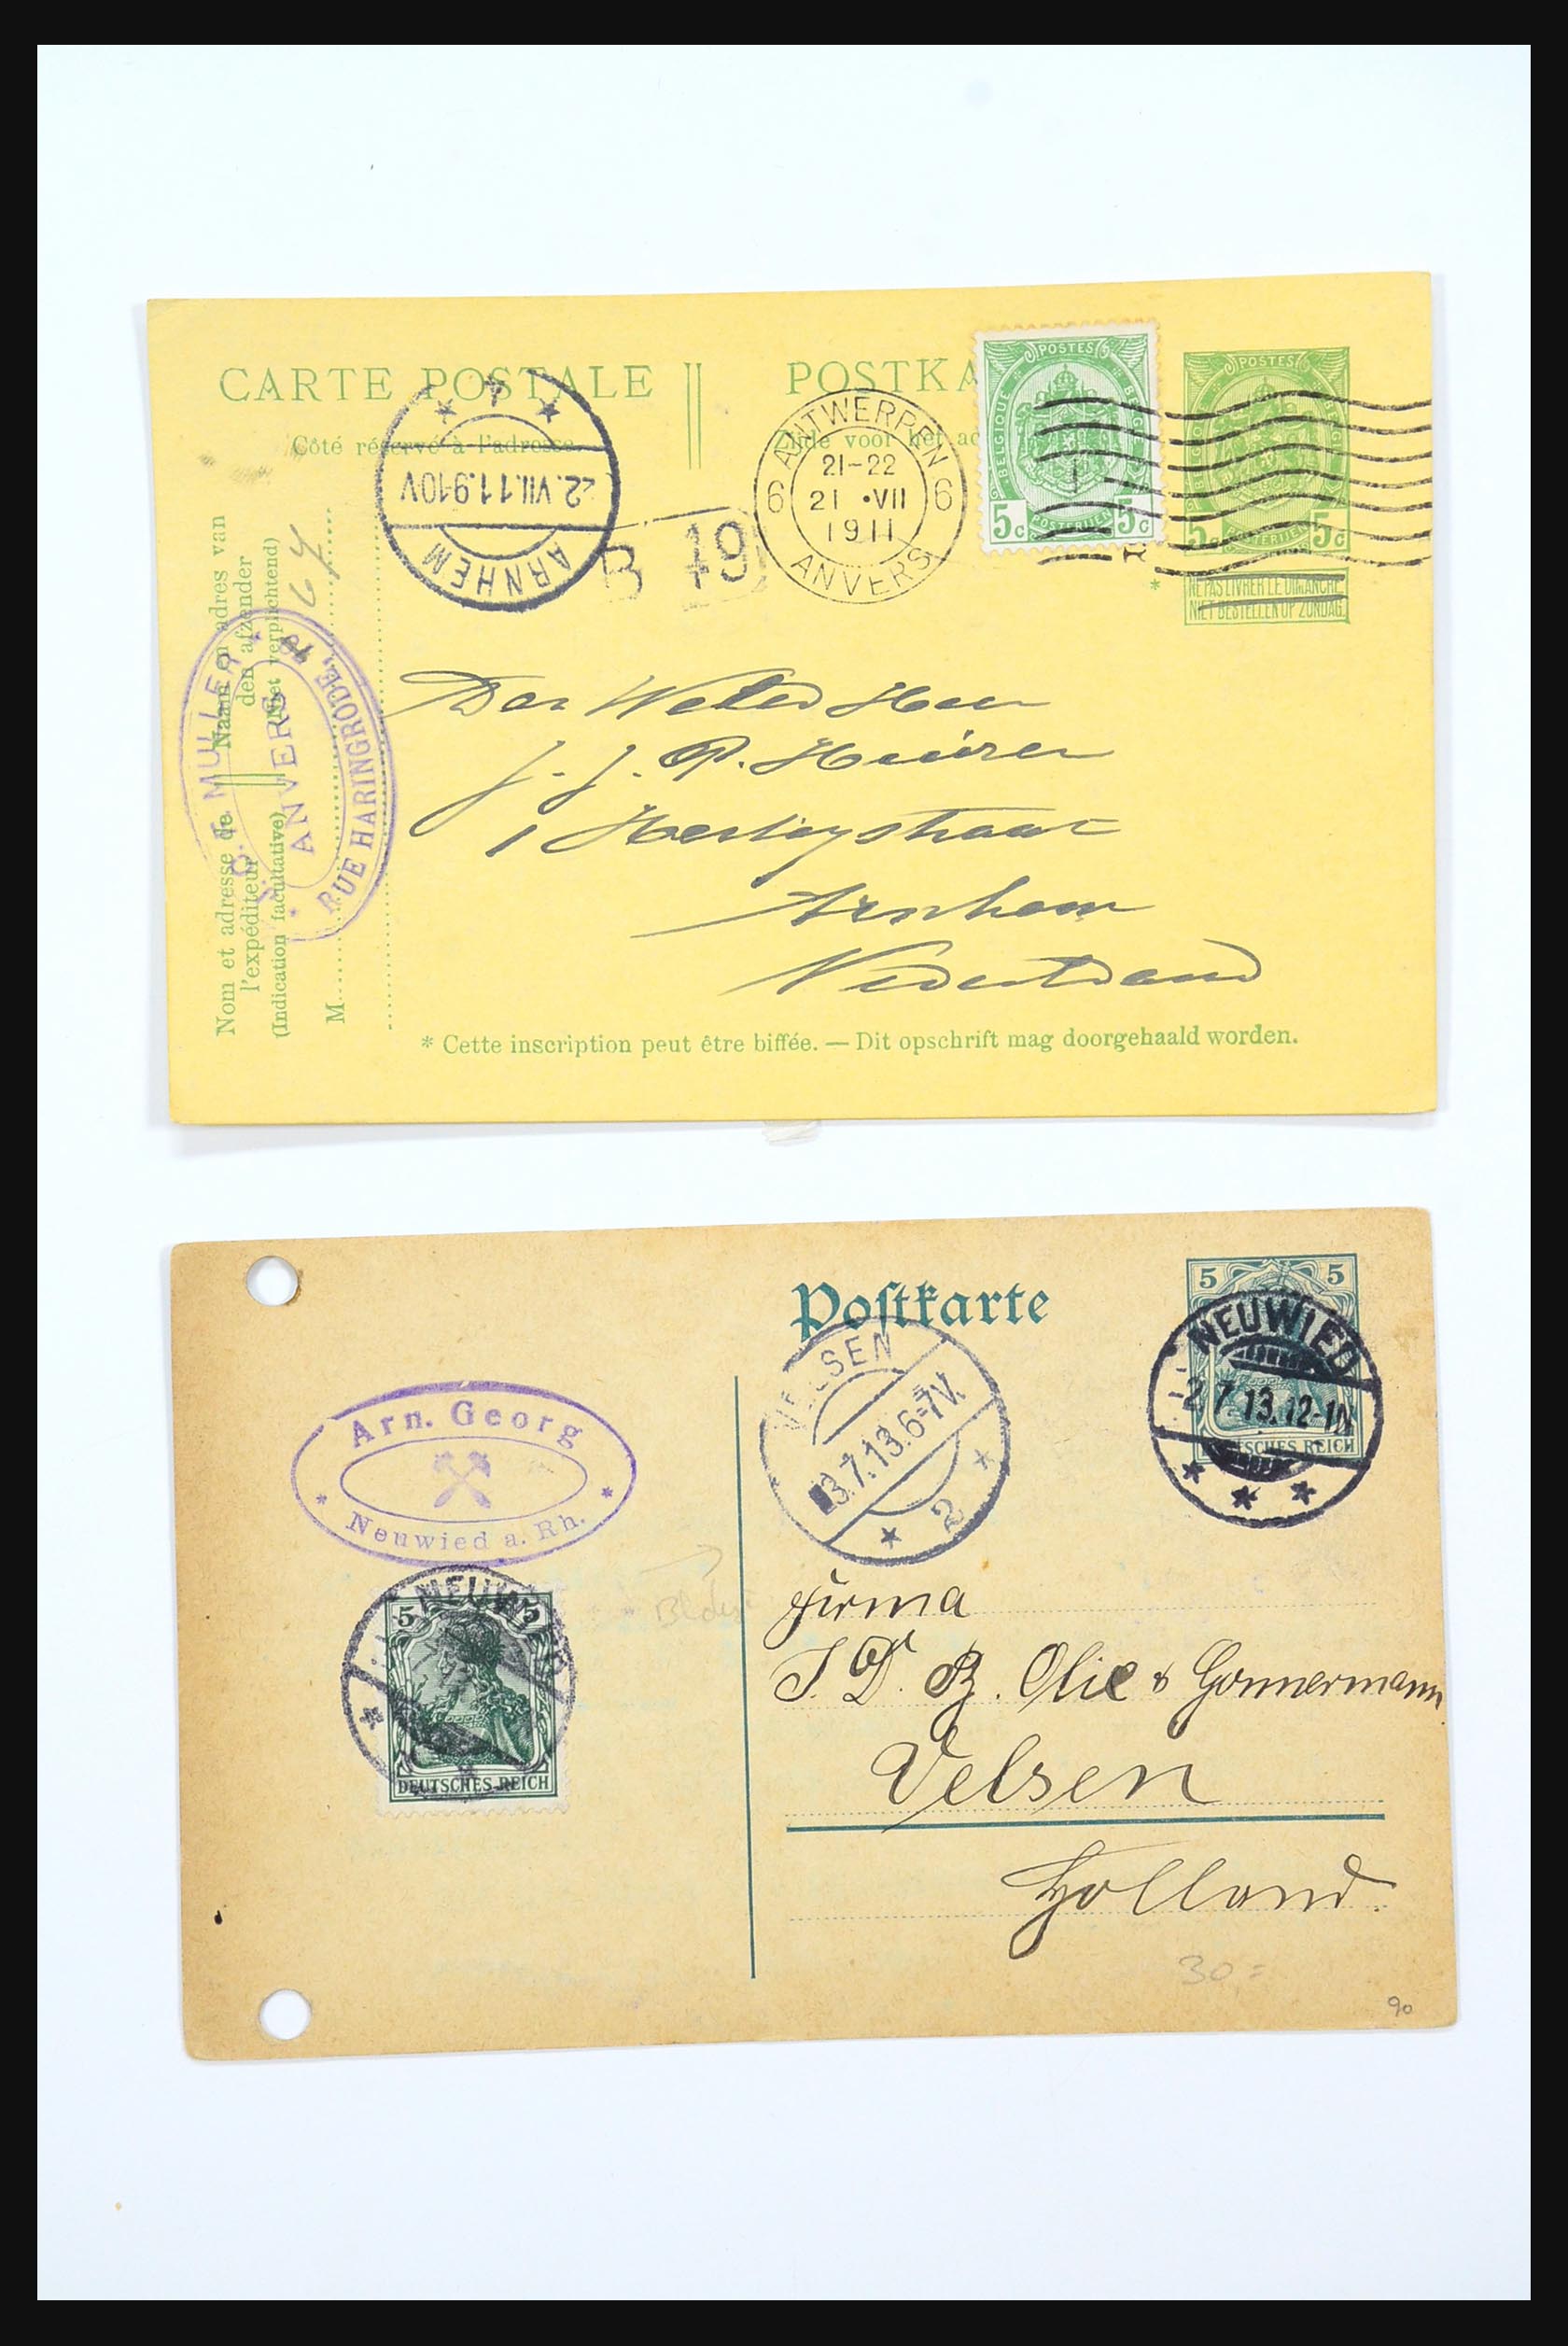 CARTE POSTALE || POSTKA
Côté réservé à l'adresse. Zijde voor het ad
POSTES
BELGIQUE
BELGIË
5c POSTERIJEN 5c
POSTES
BELGIQUE
BELGIË
5c POSTERIJEN 5c
NE PAS LIVRER LE DIMANCHE.
NIET BESTELLEN OP ZONDAG.
*
ANTWERPEN
21-22
6 21 •VII 6
1911
ANVERS
4
22.VII.11.9-10V
ARNHEM
B 19
Nom et adresse de || Naam en adres van
l'expéditeur den afzender
(Indication facultative) (Niet verplichtend)
M
64
MULLER
ANVERS
RUE HARINGRODE, 78
Heer
J. J. P.
1
Arnhem
Nederland
* Cette inscription peut être biffée. — Dit opschrift mag doorgehaald worden.
Postkarte
5 5
DEUTSCHES REICH
NEUWIED
-2.7.13.12-1N
VELSEN
3.7.13.6-7V.
2
Arn. Georg
Neuwied a. Rh.
NEUWIED
5 5
DEUTSCHES REICH
Firma
J. D. B. Olie & Gonnermann
Velsen
Holland.
30=
90